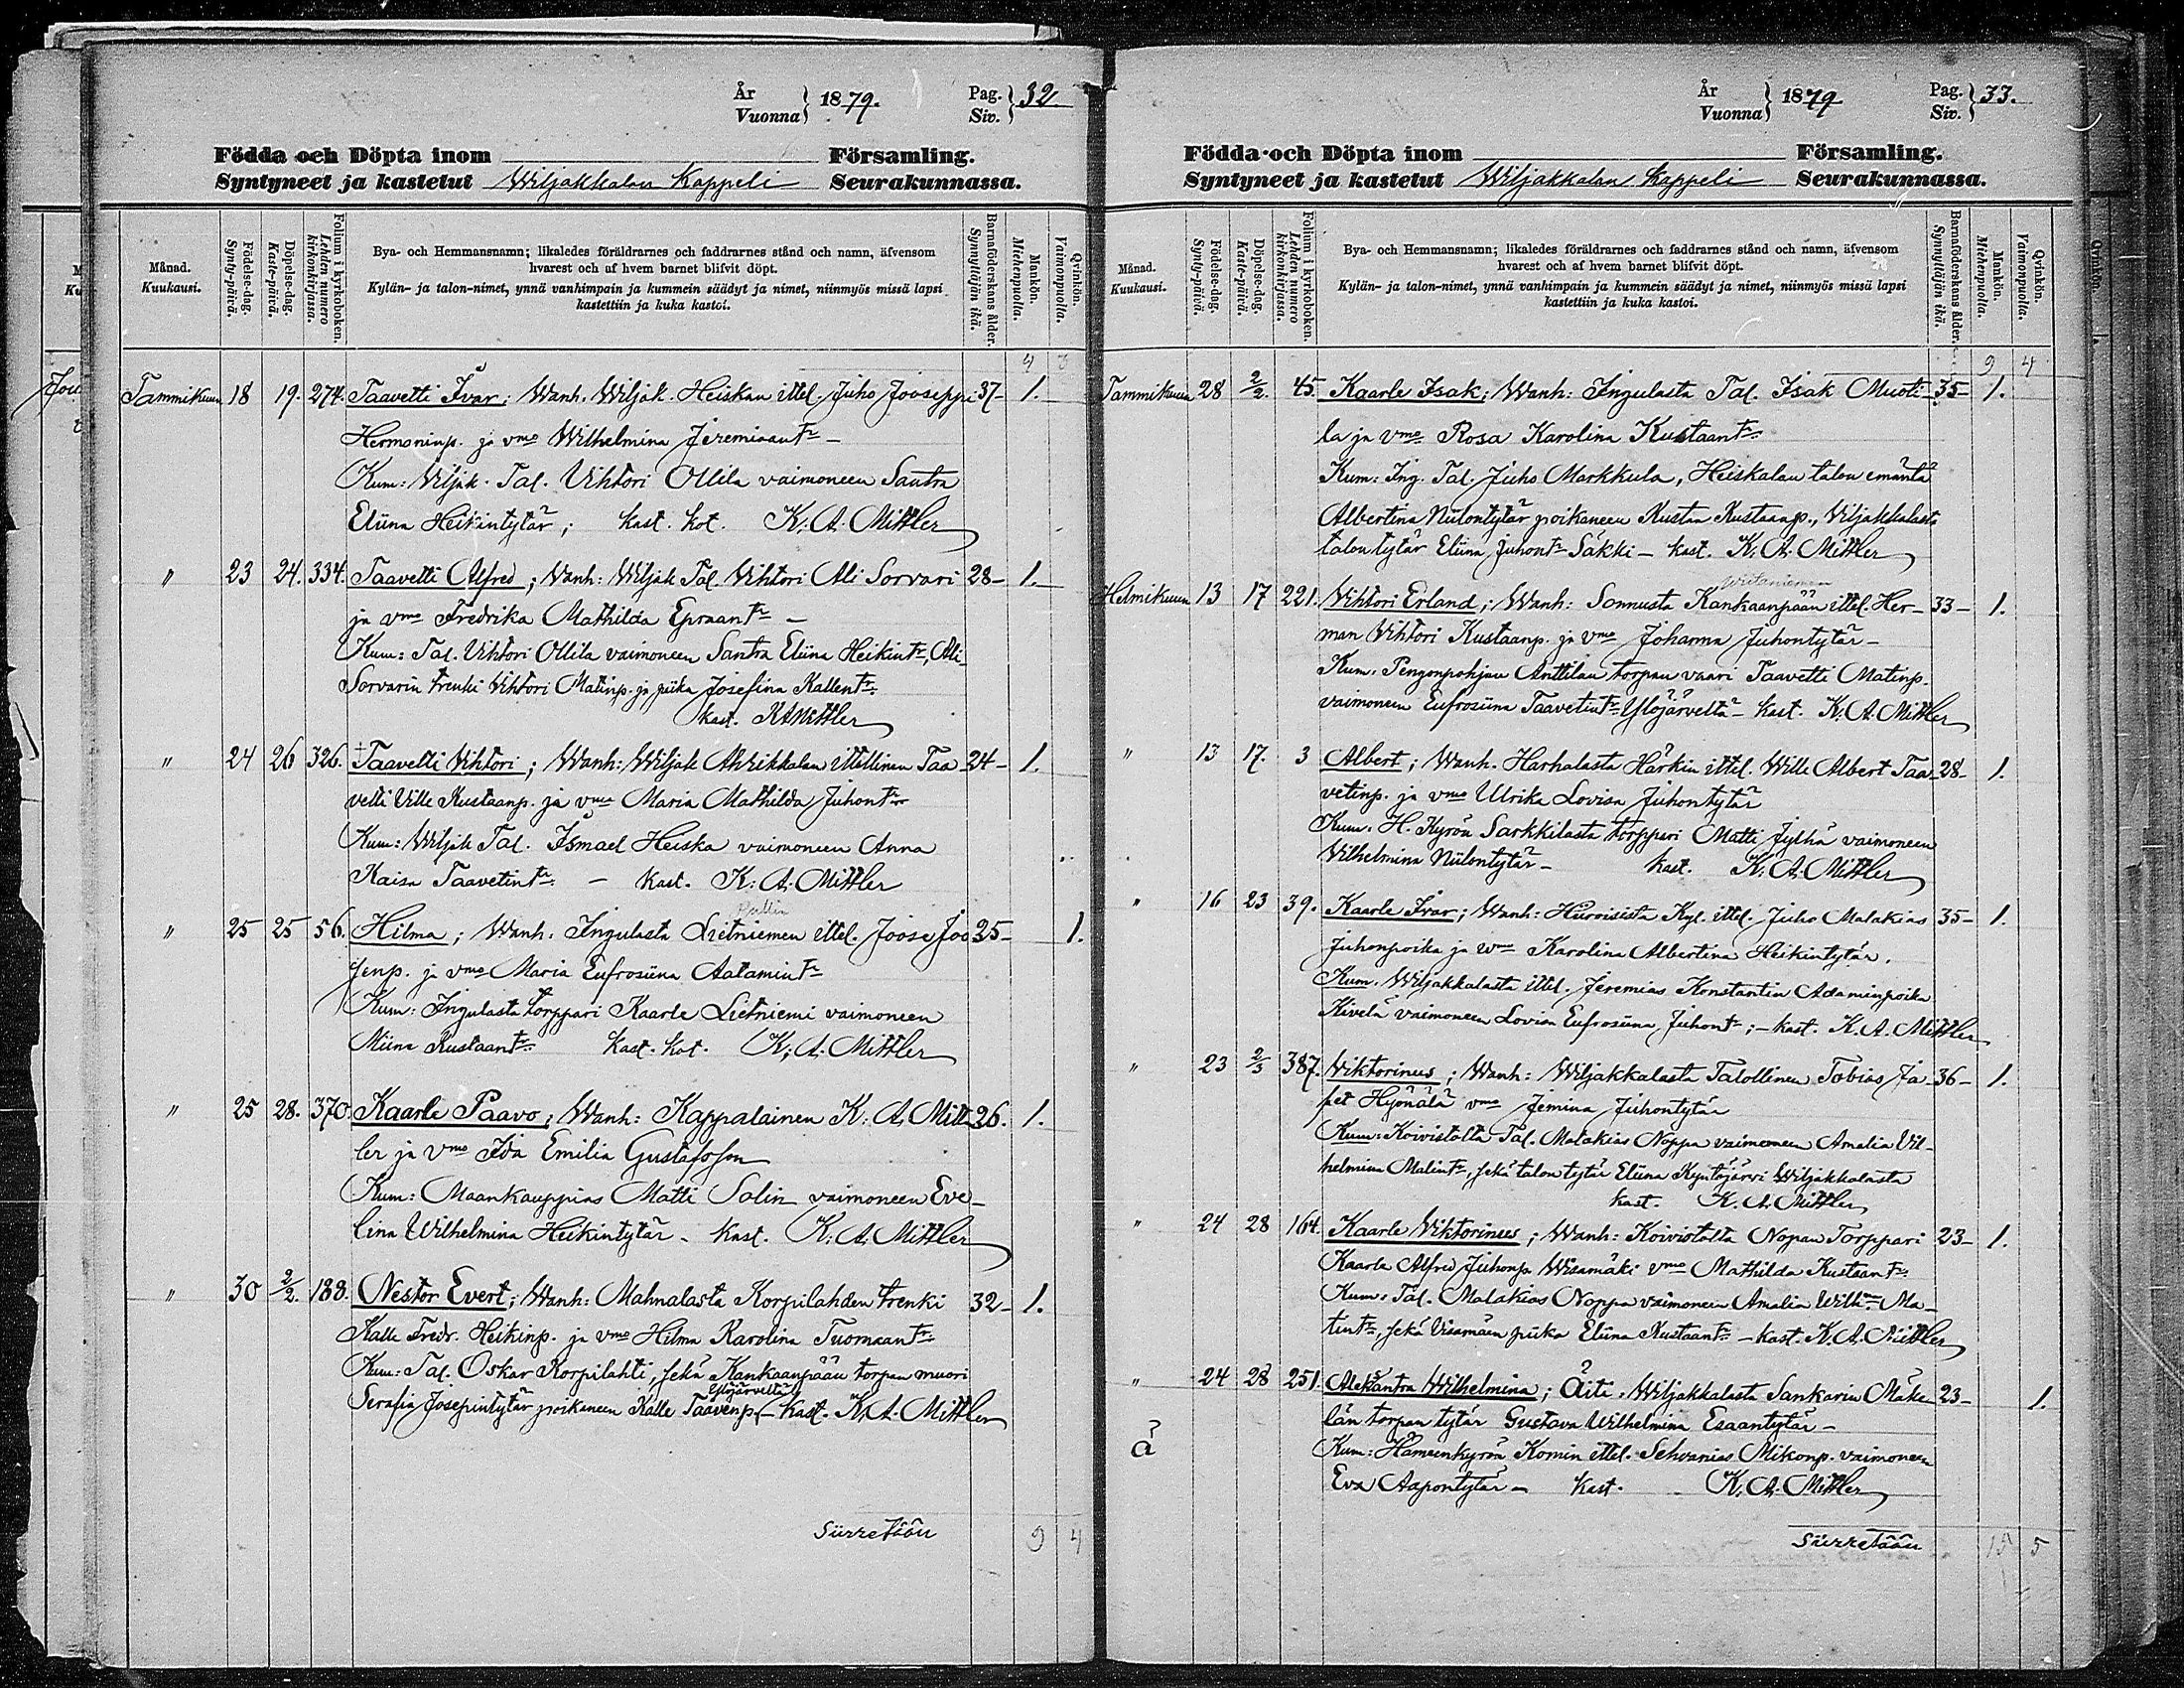 År
Vuonna } 1879. Pag.
Siv. } 32
Födda och Döpta inom Församling.
Syntyneet ja kastetut Wiljakkalan Kappeli Seurakunnassa.
Månad.
Kuukausi.
Födelse-dag.
Synty-päivä.
Döpelse-dag.
Kaste-päivä.
Folium i kyrkoboken.
Lehden numero
kirkonkirjassa.
Bya- och Hemmansnamn; likaledes föräldrarnes och faddrarnes stånd och namn, äfvensom
hvarest och af hvem barnet blifvit döpt.
Kylän- ja talon-nimet, ynnä vanhimpain ja kummein säädyt ja nimet, niinmyös missä lapsi
kastettiin ja kuka kastoi.
Barnaföderskans ålder.
Synnyttäjän ikä.
Mankön.
Miehenpuolia.
Qvinkön.
Vaimonpuolia.
Tammikuun 18 19. 274. Taavetti Ivar; Wanh. Wiljak. Heiskan ittel. Juho Jooseppi 37- 1.
Hermoninp. ja vmo Wilhelmina Jeremiaant:r -
Kum: Viljak. Tal. Vihtori Ollila vaimoneen Santra
Eliina Heikintytär; kast. kot. K. A. Mittler
" 23 24. 334. Taavetti Alfred; Wanh: Wiljak Tal. Vihtori Ali Sorvari 28- 1.
ja vmo Fredrika Mathilda Epraant:r -
Kum: Tal. Vihtori Ollila vaimoneen Santra Eliina Heikint:r, Ali
Sorvarin trenki Vihtori Matinp. ja piika Josefina Kallent:r
kast. K A Mittler
" 24 26 326. Taavetti Vihtori; Wanh: Wiljak Ahrikkalan ittellinen Taa 24- 1.
vetti Ville Kustaanp. ja vmo Maria Mathilda Juhont:r
Kum: Wiljak Tal. Ismael Heiska vaimoneen Anna
Kaisa Taavetint:r - kast. K: A: Mittler
" 25 25 56. Hilma; Wanh. Ingulasta Lietniemen ittel. Joose Joo 25- 1.
senp. ja vmo Maria Eufrosiina Aatamint:r
Kum: Ingulasta torppari Kaarle Lietniemi vaimoneen
Miina Kustaant:r kast. kot. K: A: Mittler
" 25 28. 370. Kaarle Paavo; Wanh: Kappalainen K: A. Mitt 26. 1.
ler ja vmo Ida Emilia Gustafsson
Kum: Maankauppias Matti Salin vaimoneen Eve-
lina Wilhelmina Heikintytär - kast. K. A. Mittler
" 30 2/2. 188. Nestor Evert; Wanh: Mahnalasta Korpilahden trenki 32- 1.
Kalle Fredr. Heikinp. ja vmo Hilma Karolina Tuomaant:r
Kum: Tal. Oskar Korpilahti, sekä Kankaanpään torpan muori
Ylöjärveltä
Serafia Josepintytär poikaneen Kalle Taavenp. - kast. K. A. Mittler
Siirretään 9 4
År
Vuonna } 1879 Pag.
Siv. } 33.
Födda och Döpta inom Församling.
Syntyneet ja kastetut Wiljakkalan Kappeli Seurakunnassa.
Månad.
Kuukausi.
Födelse-dag.
Synty-päivä.
Döpelse-dag.
Kaste-päivä.
Folium i kyrkoboken.
Lehden numero
kirkonkirjassa.
Bya- och Hemmansnamn; likaledes föräldrarnes och faddrarnes stånd och namn, äfvensom
hvarest och af hvem barnet blifvit döpt.
Kylän- ja talon-nimet, ynnä vanhimpain ja kummein säädyt ja nimet, niinmyös missä lapsi
kastettiin ja kuka kastoi.
Barnaföderskans ålder.
Synnyttäjän ikä.
Mankön.
Miehenpuolia.
Qvinkön.
Vaimonpuolia.
9 4
Tammikuun 28 2/2. 45. Kaarle Isak; Wanh: Ingulasta Tal. Isak Muoti- 35- 1.
la ja vmo Rosa Karolina Kustaant:r
Kum: Ing. Tal. Juho Markkula, Heiskalan talon emäntä
Albertina Niilontytär poikaneen Kustaa Kustaanp., Viljakkalasta
talon tytär Eliina Juhont:r Säkki - kast. K. A. Mittler
Helmikuun 13 17 221. Vihtori Erland; Wanh: Sonnusta Kankaanpään ittel. Her- 33- 1.
man Vihtori Kustaanp. ja vmo Johanna Juhontytär -
Kum: Pengonpohjan Anttilan torpan vaari Taavetti Matinp.
vaimoneen Eufrosiina Taavetint:r Ylöjärveltä - kast. K. A. Mittler
" 13 17. 3 Albert; Wanh. Harhalasta Härkin ittel. Wille Albert Taa- 28- 1.
vetinp. ja vmo Ulrika Lovisa Juhontytär
Kum: H. Kyrön Sarkkilasta torppari Matti Jylhä vaimoneen
Vilhelmina Niilontytär - kast. K. A. Mittler
" 16 23 39. Kaarle Ivar; Wanh: Hiiroisista Kyl. ittel. Juho Malakias 35- 1.
Juhonpoika ja vmo Karolina Albertina Heikintytär.
Kum. Wiljakkalasta ittel. Jeremias Konstantin Adaminpoika
Kivelä vaimoneen Lovisa Eufrosiina Juhont:r; - kast. K. A. Mittler
" 23 2/3 387. Viktorinus; Wanh: Wiljakkalasta Talollinen Tobias Ja- 36- 1.
fet Hyönälä vmo Jemina Juhontytär
Kum: Koivistolta Tal. Malakias Noppa vaimoneen Amalia Vil-
helmina Matint:r, sekä talon tytär Eliina Kyntöjärvi Wiljakkalasta
kast. K. A. Mittler
" 24 28 164. Kaarle Viktorinus; Wanh: Koivistolta Nopan Torppari 23- 1.
Kaarle Alfred Juhonp. Wisamäki vmo Mathilda Kustaant:r
Kum: Tal. Malakias Noppa vaimoneen Amalia Wilh: Ma-
tint:r, sekä Visamäen piika Eliina Kustaant:r - kast. K. A. Mittler
" 24 28 251. Aleksantra Wilhelmina; Äiti: Wiljakkalasta Sankarin Mäke 23- 1.
län torpan tytär Gustava Wilhelmina Esaantytär -
ä
Kum: Hämeenkyrön Komin ittel. Sehvanias Mikonp. vaimoneen
Eva Aapontytär - kast. K. A. Mittler
Siirretään 5